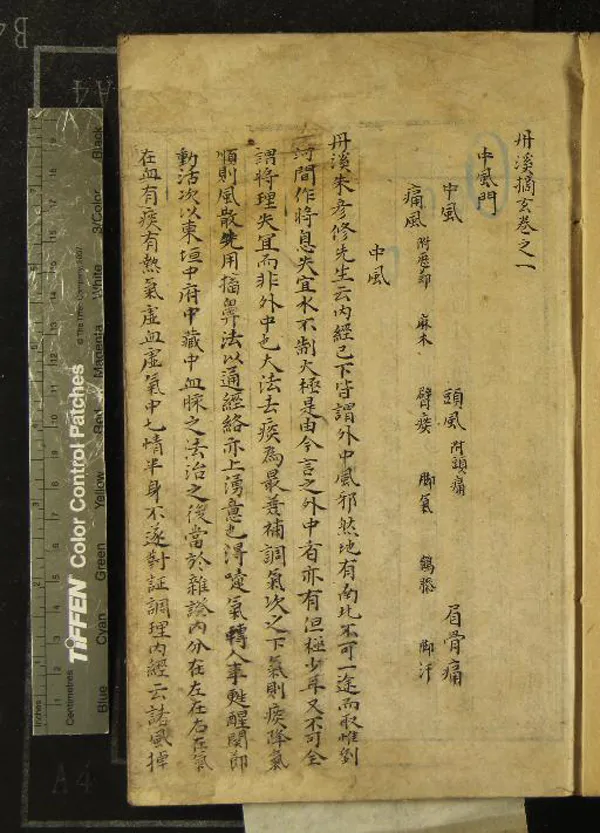 丹溪摘玄卷之一
中風門
中風 頭風 附頭痛 眉骨痛
痛風 附歷節 麻木 臂痰 脚氣 鶴膝 脚汗
中風
丹溪朱彦修先生云内經已下皆謂外中風邪然地有南北不可一途而取惟劉
河間作將息失宜水不制火極是由今言之外中者亦有但極少耳又不可全
謂將理失宜而非外中也大法去痰為最善補調氣次之下氣則痰降氣
順則風散先用搐鼻法以通經絡亦上湧意也得嚏氣轉人事甦醒関節
動活次以東垣中府中藏中血脉之法治之後當於雜證内分在左在右在氣
在血有痰有熱氣虚血虚氣中七情半身不遂對証調理内經云諸風掉
Inches
Centimetres
TIFFEN Color Control Patches
© The Tiffen Company, 2007
Blue Cyan Green Yellow Red Magenta White 3/Color Black
A4
A4
B4